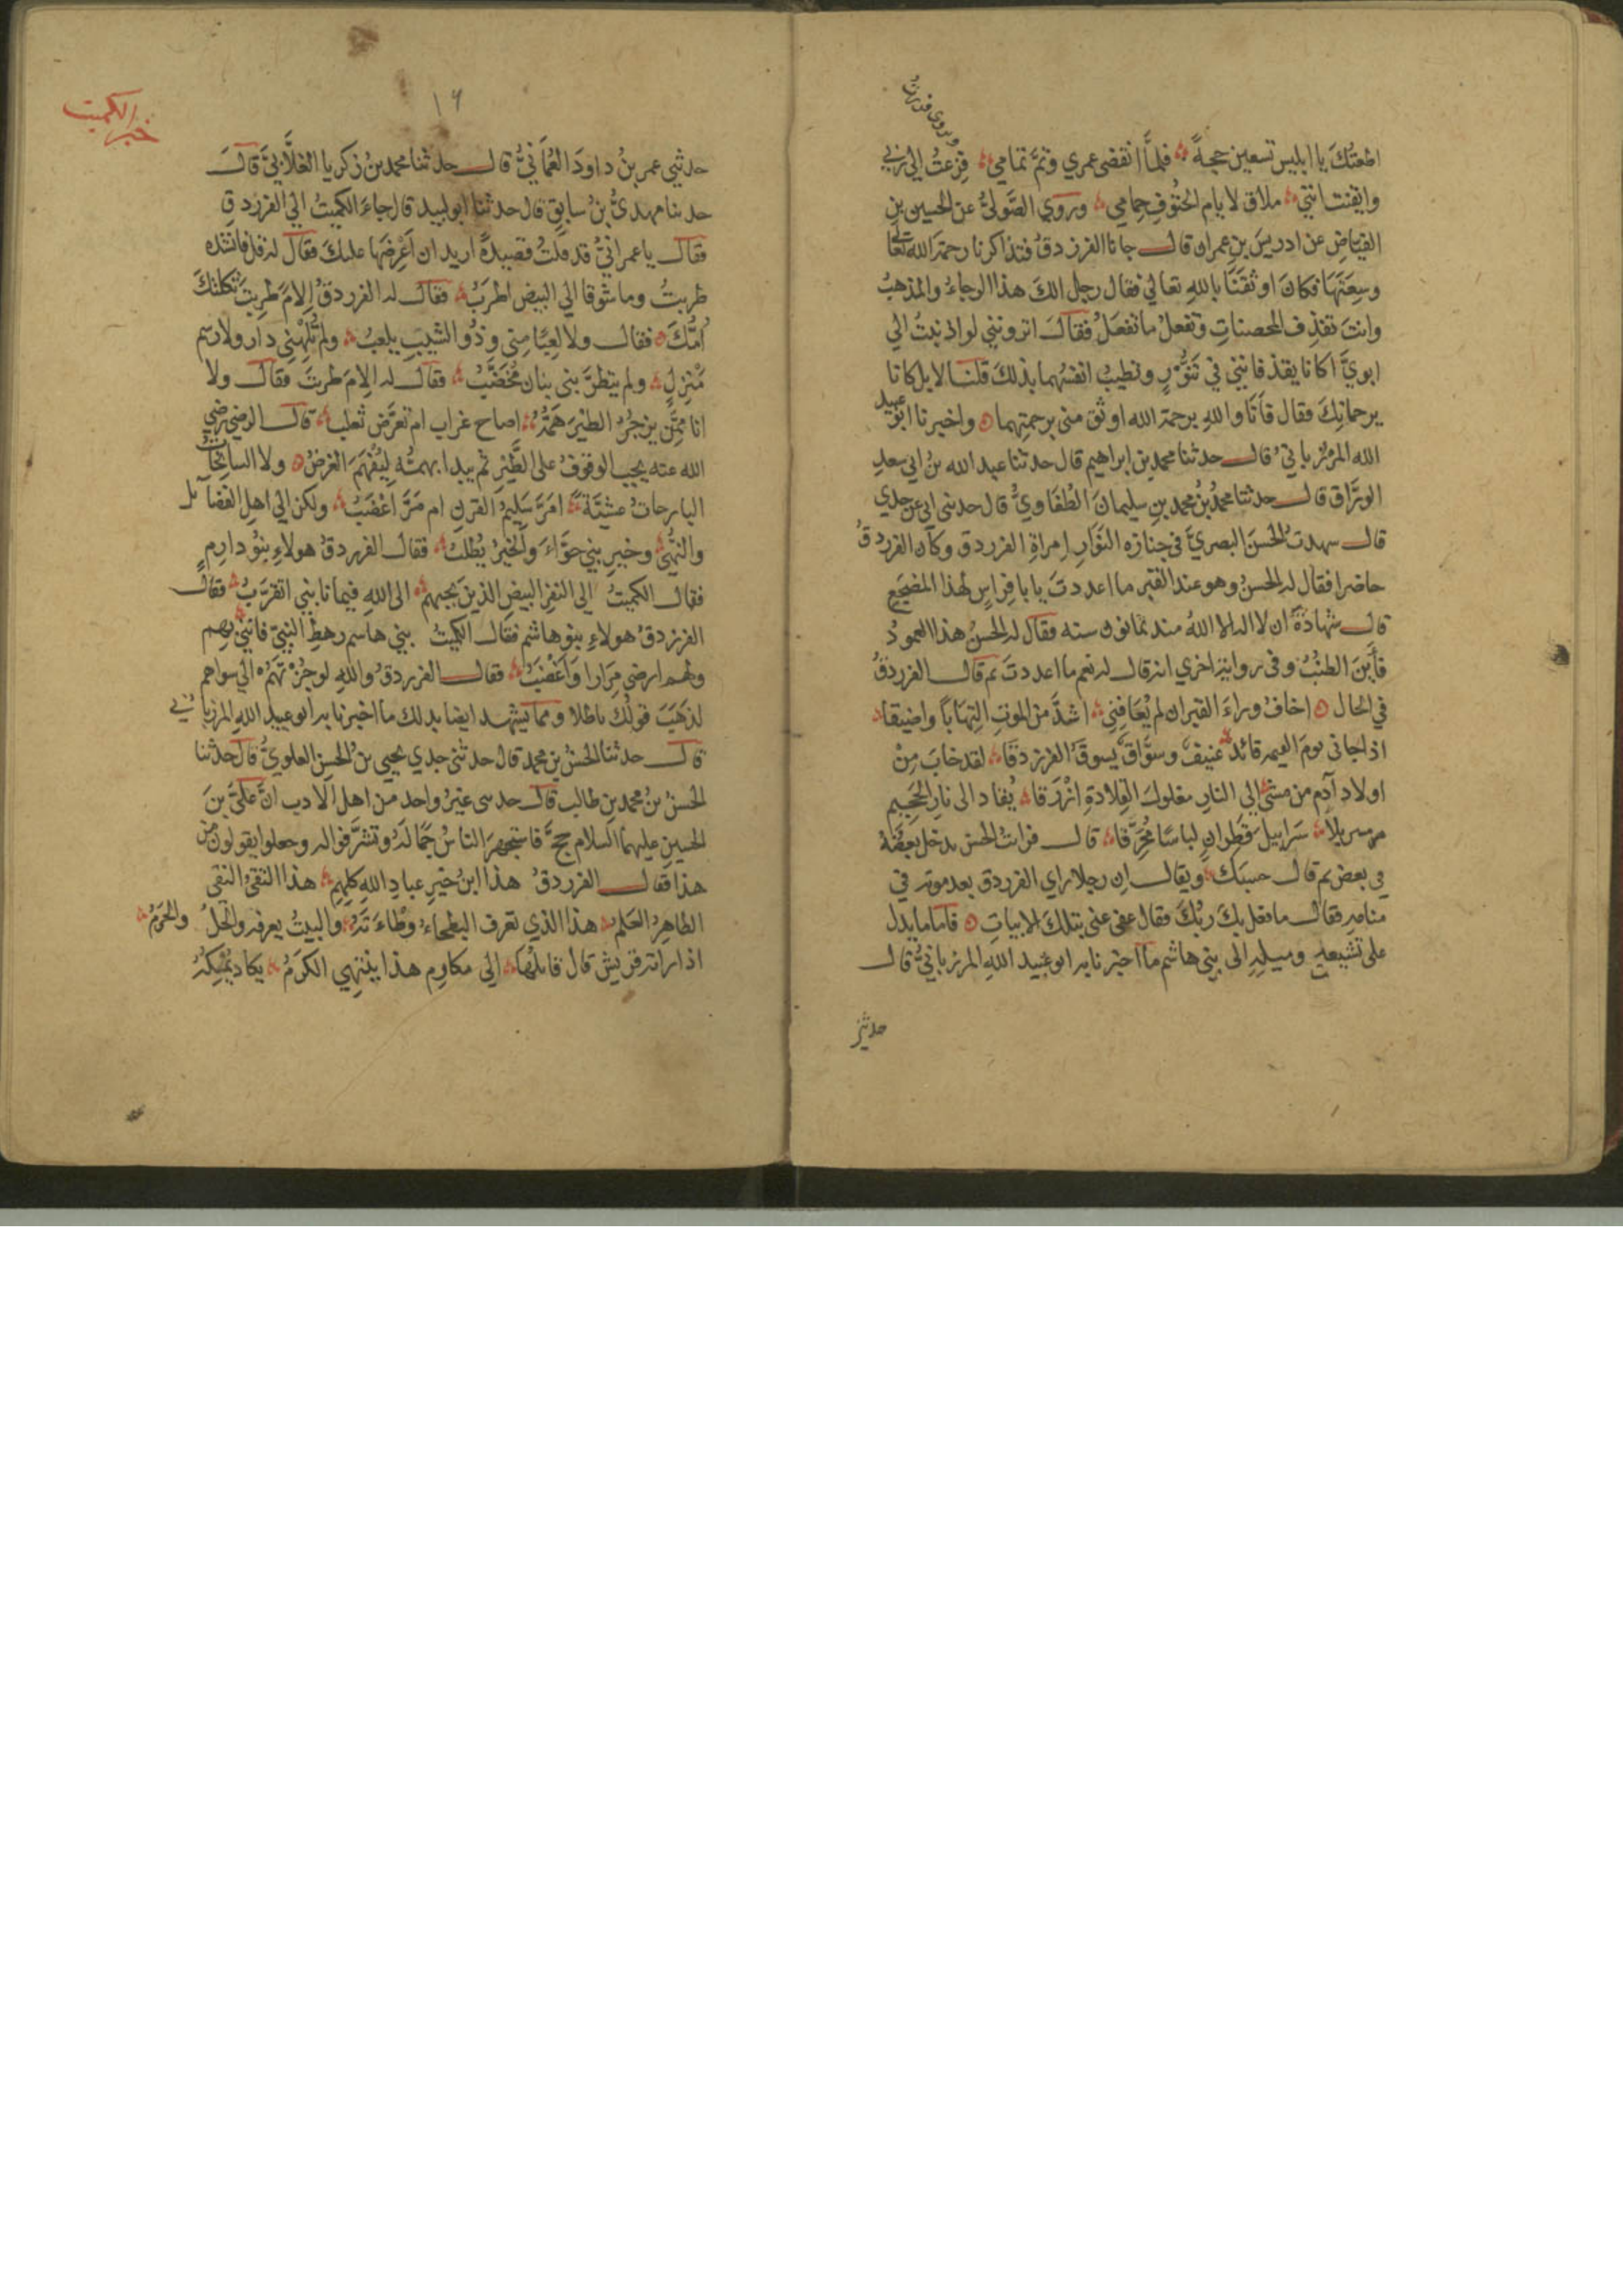 ويروى فررت
اطعتك يا ابليس تسعين حجة فلما انقضى عمري وتم تمامي فزعت الى ربي
وايقنت انني ملاق لايام الحتوف حمامي وروى الصولي عن الحسين بن
الفياض عن ادريس بن عمران قال جانا الفرزدق فتذاكرنا رحمة الله تعالى
وسعتها فكان اوثقنا بالله تعالى فقال رجل الك هذا الرجاء والمذهب
وانت تقذف المحصنات وتفعل ما تفعل فقال اترونني لو اذنبت الى
ابوي اكانا يقذفانني في تنور وتطيب انفسهما بذلك قلنا لا بل كانا
يرحمانك فقال فانا والله برحمة الله اوثق منى برحمتهما واخبرنا ابو عبيد
الله المرزباني قال حدثنا محمد بن ابراهيم قال حدثنا عبد الله بن ابي سعد
الوراق قال حدثنا محمد بن محمد بن سليمان الطفاوي قال حدثنى ابي عن جدي
قال شهدت الحسن البصري في جنازه النوار امراة الفرزدق وكان الفرزدق
حاضرا فقال له الحسن وهو عند القبر ما اعددت يا با فراس لهذا المضجع
قال شهادة ان لا اله الا الله منذ ثمانون سنه فقال له الحسن هذا العمود
فأين الطنب وفى رواية اخري انه قال له نعم ما اعددت ثم قال الفرزدق
في الحال اخاف وراء القبر ان لم يعافني اشد من الموت التهابا واضيقا
اذا جانى يوم القيمه قائد عنيف وسواق يسوق الفرزدقا لقد خاب من
اولاد آدم من مشى الى النار مغلول القلادة ازرقا يقاد الى نار الجحيم
مسربلا سرابيل قطران لباسا محرقا قال فرايت الحسن يدخل بعضه
في بعض ثم قال حسبك ويقال ان رجلا راي الفرزدق بعد موته في
منامه فقال ما فعل بك ربك فقال عفى عنى بتلك الابيات فاما ما يدل
على تشيعه وميله الى بني هاشم ما اخبرنا به ابو عبيد الله المرزباني قال
حدثني
١٦
خبر الكميت
حدثني عمر بن داود العماني قال حدثنا محمد بن زكريا الغلابي قال
حدثنا مهدي بن سابق قال حدثنا ابو لبيد قال جاء الكميت الى الفرزدق
فقال يا عم اني قد قلت قصيدة اريد ان اعرضها عليك فقال له قل فانشده
طربت وما شوقا الى البيض اطرب فقال له الفرزدق الام طربت ثكلتك
امك فقال ولا لعبا مني وذو الشيب يلعب ولم تلهني دار ولا رسم
منزل ولم يتطربنى بنان مخضب فقال له الام طربت فقال ولا
انا ممن يزجر الطير همه اصاح غراب ام تعرض ثعلب قال الرضي رضي
الله عنه يجب الوقوف على الطير ثم يبدا بهمه ليفهم الغرض ولا السانحات
البارحات عشية امر سليم القرن ام مر اعضب ولكن الى اهل الفضائل
والنهى وخير بني حواء والخير يطلب فقال الفرزدق هولاء بنو دارم
فقال الكميت الى النفر البيض الذين بحبهم الى الله فيما نابني اتقرب فقال
الفرزدق هولاء بنو هاشم فقال الكميت بني هاشم رهط النبي فانني بهم
ولهم ارضى مرارا واغضب فقال الفرزدق والله لو جزتهم الى سواهم
لذهب قولك باطلا ومما يشهد ايضا بذلك ما اخبرنا به ابو عبيد الله المرزباني
قال حدثنا الحسن بن محمد قال حدثنى جدي يحيى بن الحسن العلوي قال حدثنا
الحسن بن محمد بن طالب قال حدثنى غير واحد من اهل الادب ان على بن
الحسين عليهما السلام حج فاستجهر الناس جماله وتشرفوا له وجعلوا يقولون من
هذا فقال الفرزدق هذا ابن خير عباد الله كلهم هذا التقي النقي
الطاهر العلم هذا الذي تعرف البطحاء وطاءته والبيت يعرفه والحل والحرم
اذا راته قريش قال قائلها الى مكارم هذا ينتهي الكرم يكاد يمسكه